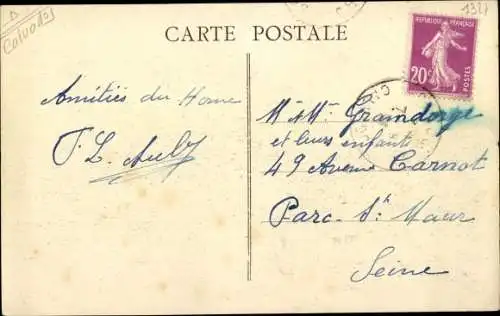 Calvados
1327
CARTE POSTALE
REPUBLIQUE FRANÇAISE
20c
POSTES
Amitiés du Home
M. Mme Graindorge
et leurs enfants
49 Avenue Carnot
Parc-St Maur
Seine